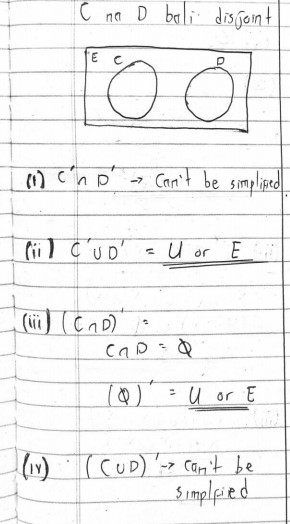 C na D bali disjoint
E C D
(i) C'∩D' → Can't be simplified
(ii) C'∪D' = U or E
(iii) (C∩D)' =
C∩D = Ø
(Ø)' = U or E
(iv) (C∪D)' → can't be
simplfied